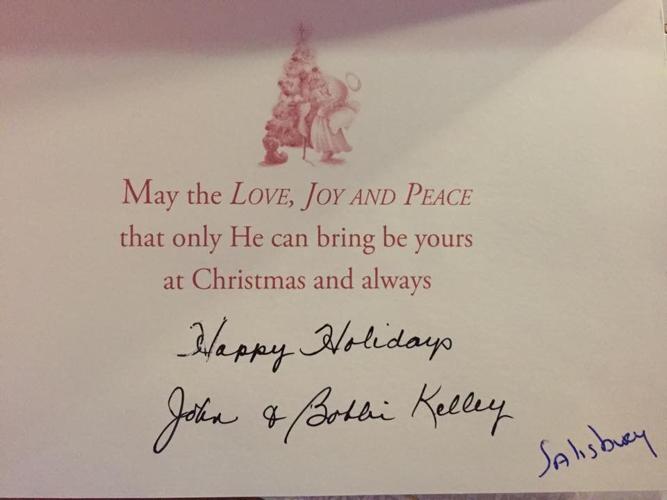 May the LOVE, JOY AND PEACE
that only He can bring be yours
at Christmas and always
Happy Holidays
John & Bobbi Kelley
Salisbury